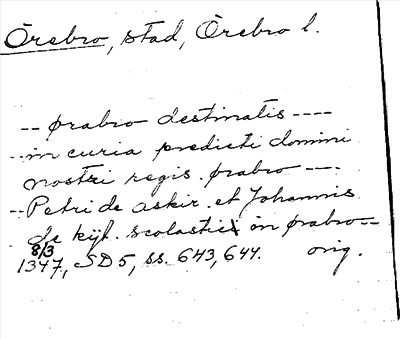 Örebro, stad, Örebro l.
-- ørabro destinatis ----
-- in curia predicti domini
nostri regis ørabro ----
-- Petri de askir et Johannis
de kijl. scolastici in ørabro --
8/3
1347, SD5, ss. 643, 644. orig.